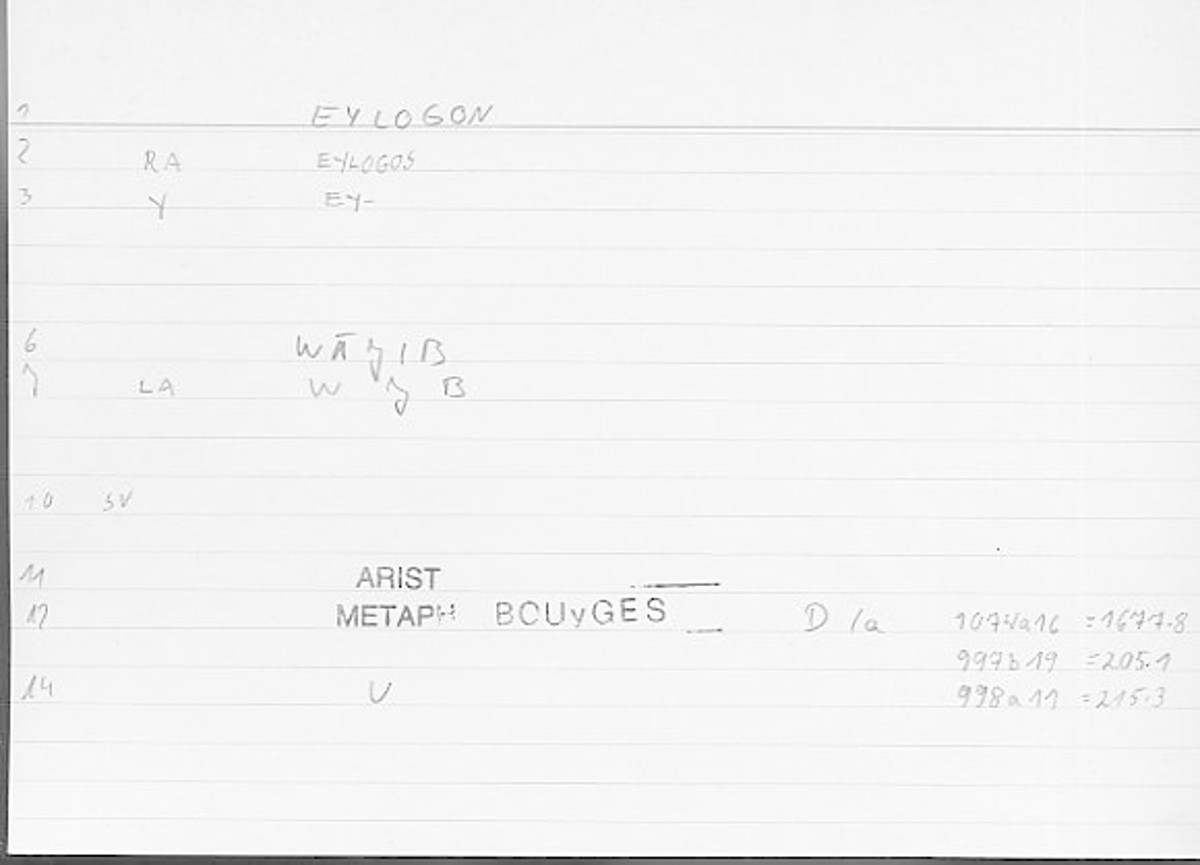 1 EYLOGON
2 RA EYLOGOS
3 Y EY-
6 WĀʒIB
7 LA W ʒ B
10 SV
11 ARIST
12 METAPH BOUyGES D /a 1074a16 =1677.8
997b19 =205.1
14 V 998a11 =215.3